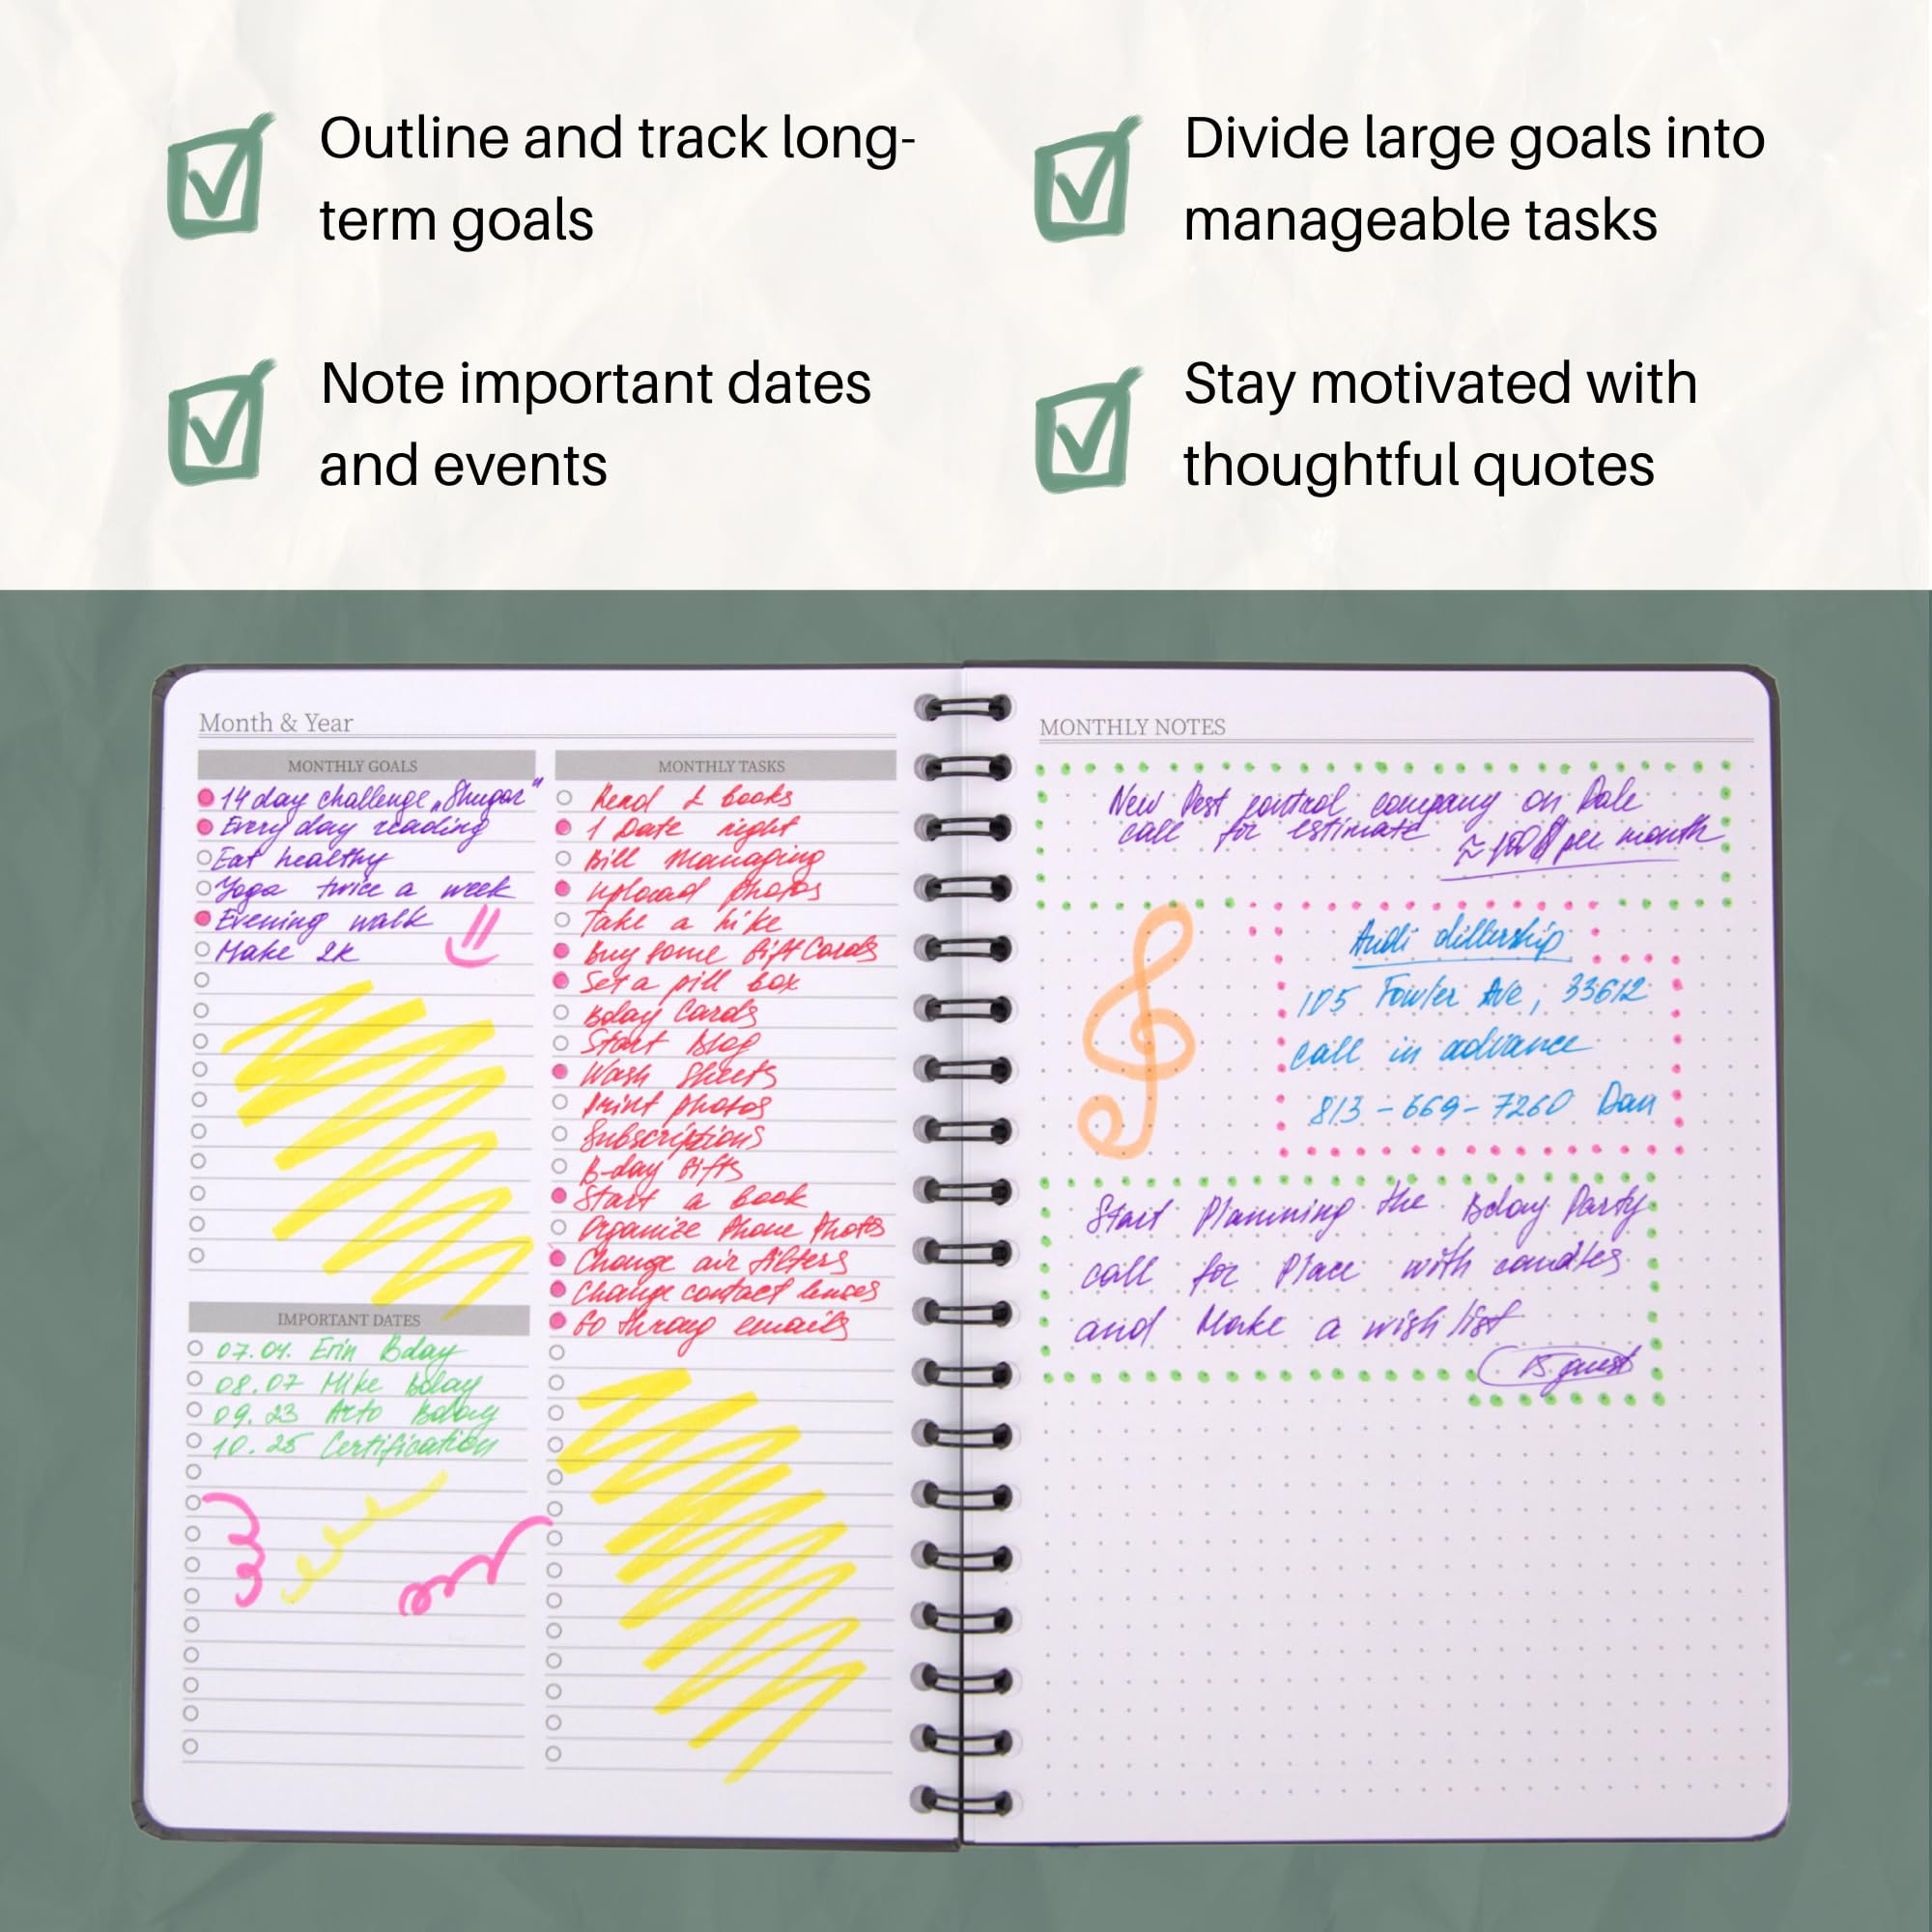 Outline and track long-
term goals
Divide large goals into
manageable tasks
Note important dates
and events
Stay motivated with
thoughtful quotes
Month & Year
MONTHLY GOALS
14 day challenge „Shugar"
Every day reading
Eat healthy
Yoga twice a week
Evening walk
Make 2k
IMPORTANT DATES
07.04. Erin Bday
08.07 Mike Bday
09.23 Arto Bday
10.25 Certification
MONTHLY TASKS
Read 2 books
1 Date night
Bill Managing
Upload photos
Take a hike
Buy some Gift Cards
Set a pill box
Bday Cards
Start Blog
Wash Sheets
Print photos
Subscriptions
B-day Gifts
Start a book
Organize Phone Photos
Change air filters
Change contact lenses
Go throug emails
MONTHLY NOTES
New Pest control company on Dale
call for estimate
≈ 100$ per month
Audi dillership
105 Fowler Ave, 33612
call in advance
813-669-7260 Dan
Start Planning the Bday Party
call for Place with candles
and Make a wish list
15 guest